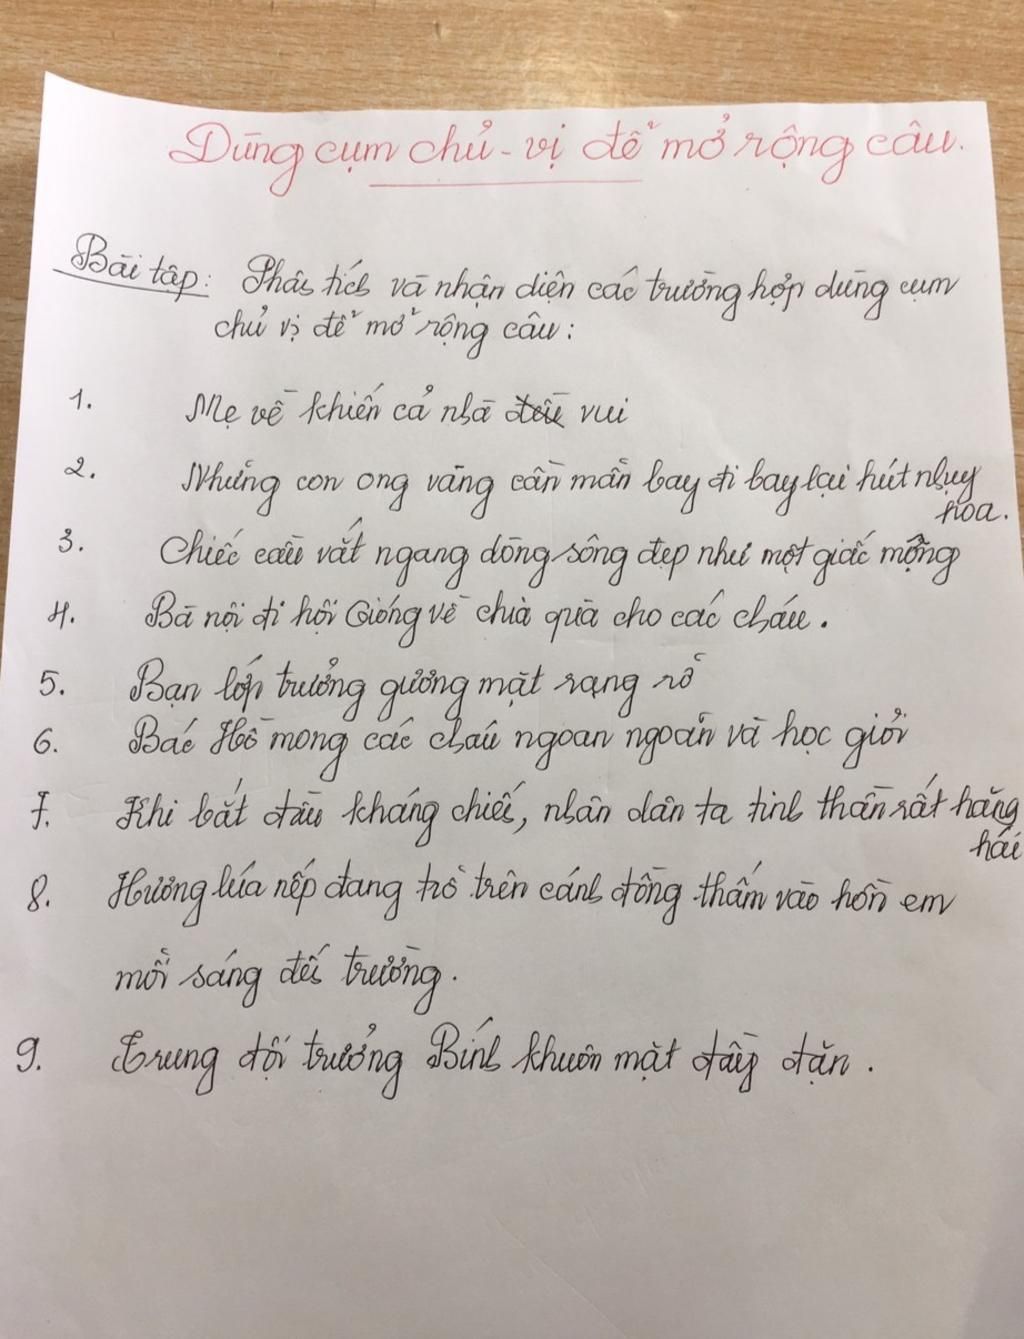 Dùng cụm chủ - vị để mở rộng câu.
Bài tập: Phân tích và nhận diện các trường hợp dùng cụm
chủ vị để mở rộng câu:
1. Mẹ về khiến cả nhà đều vui
2. Những con ong vàng cần mẫn bay đi bay lại hút nhụy
hoa.
3. Chiếc cầu vắt ngang dòng sông đẹp như một giấc mộng
4. Bà nội đi hội Gióng về chia quà cho các cháu.
5. Bạn lớp trưởng gương mặt rạng rỡ
6. Bác Hồ mong các cháu ngoan ngoãn và học giỏi
7. Khi bắt đầu kháng chiến, nhân dân ta tinh thần rất hăng
hái
8. Hương lúa nếp đang trổ trên cánh đồng thấm vào hồn em
mỗi sáng đến trường.
9. Trung đội trưởng Bính khuôn mặt đầy đặn.